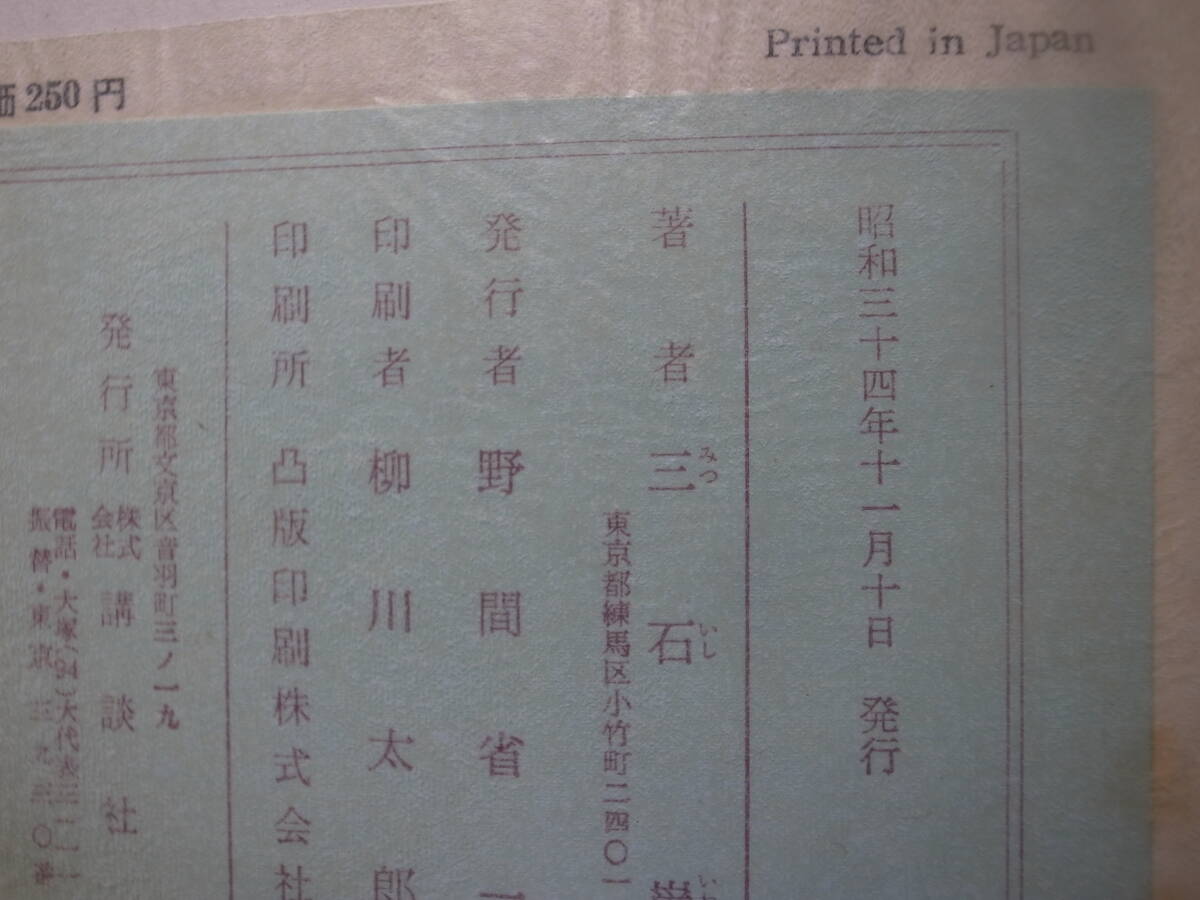 Printed in Japan
価250円
昭和三十四年十一月十日　発行
著者　三石巌
みついしいわ
東京都練馬区小竹町二四〇一
発行者　野間省一
印刷者　柳川太郎
印刷所　凸版印刷株式会社
東京都文京区音羽町三ノ一九
発行所　株式会社　講談社
電話・大塚(94)大代表三一一一
振替・東京三九三〇番